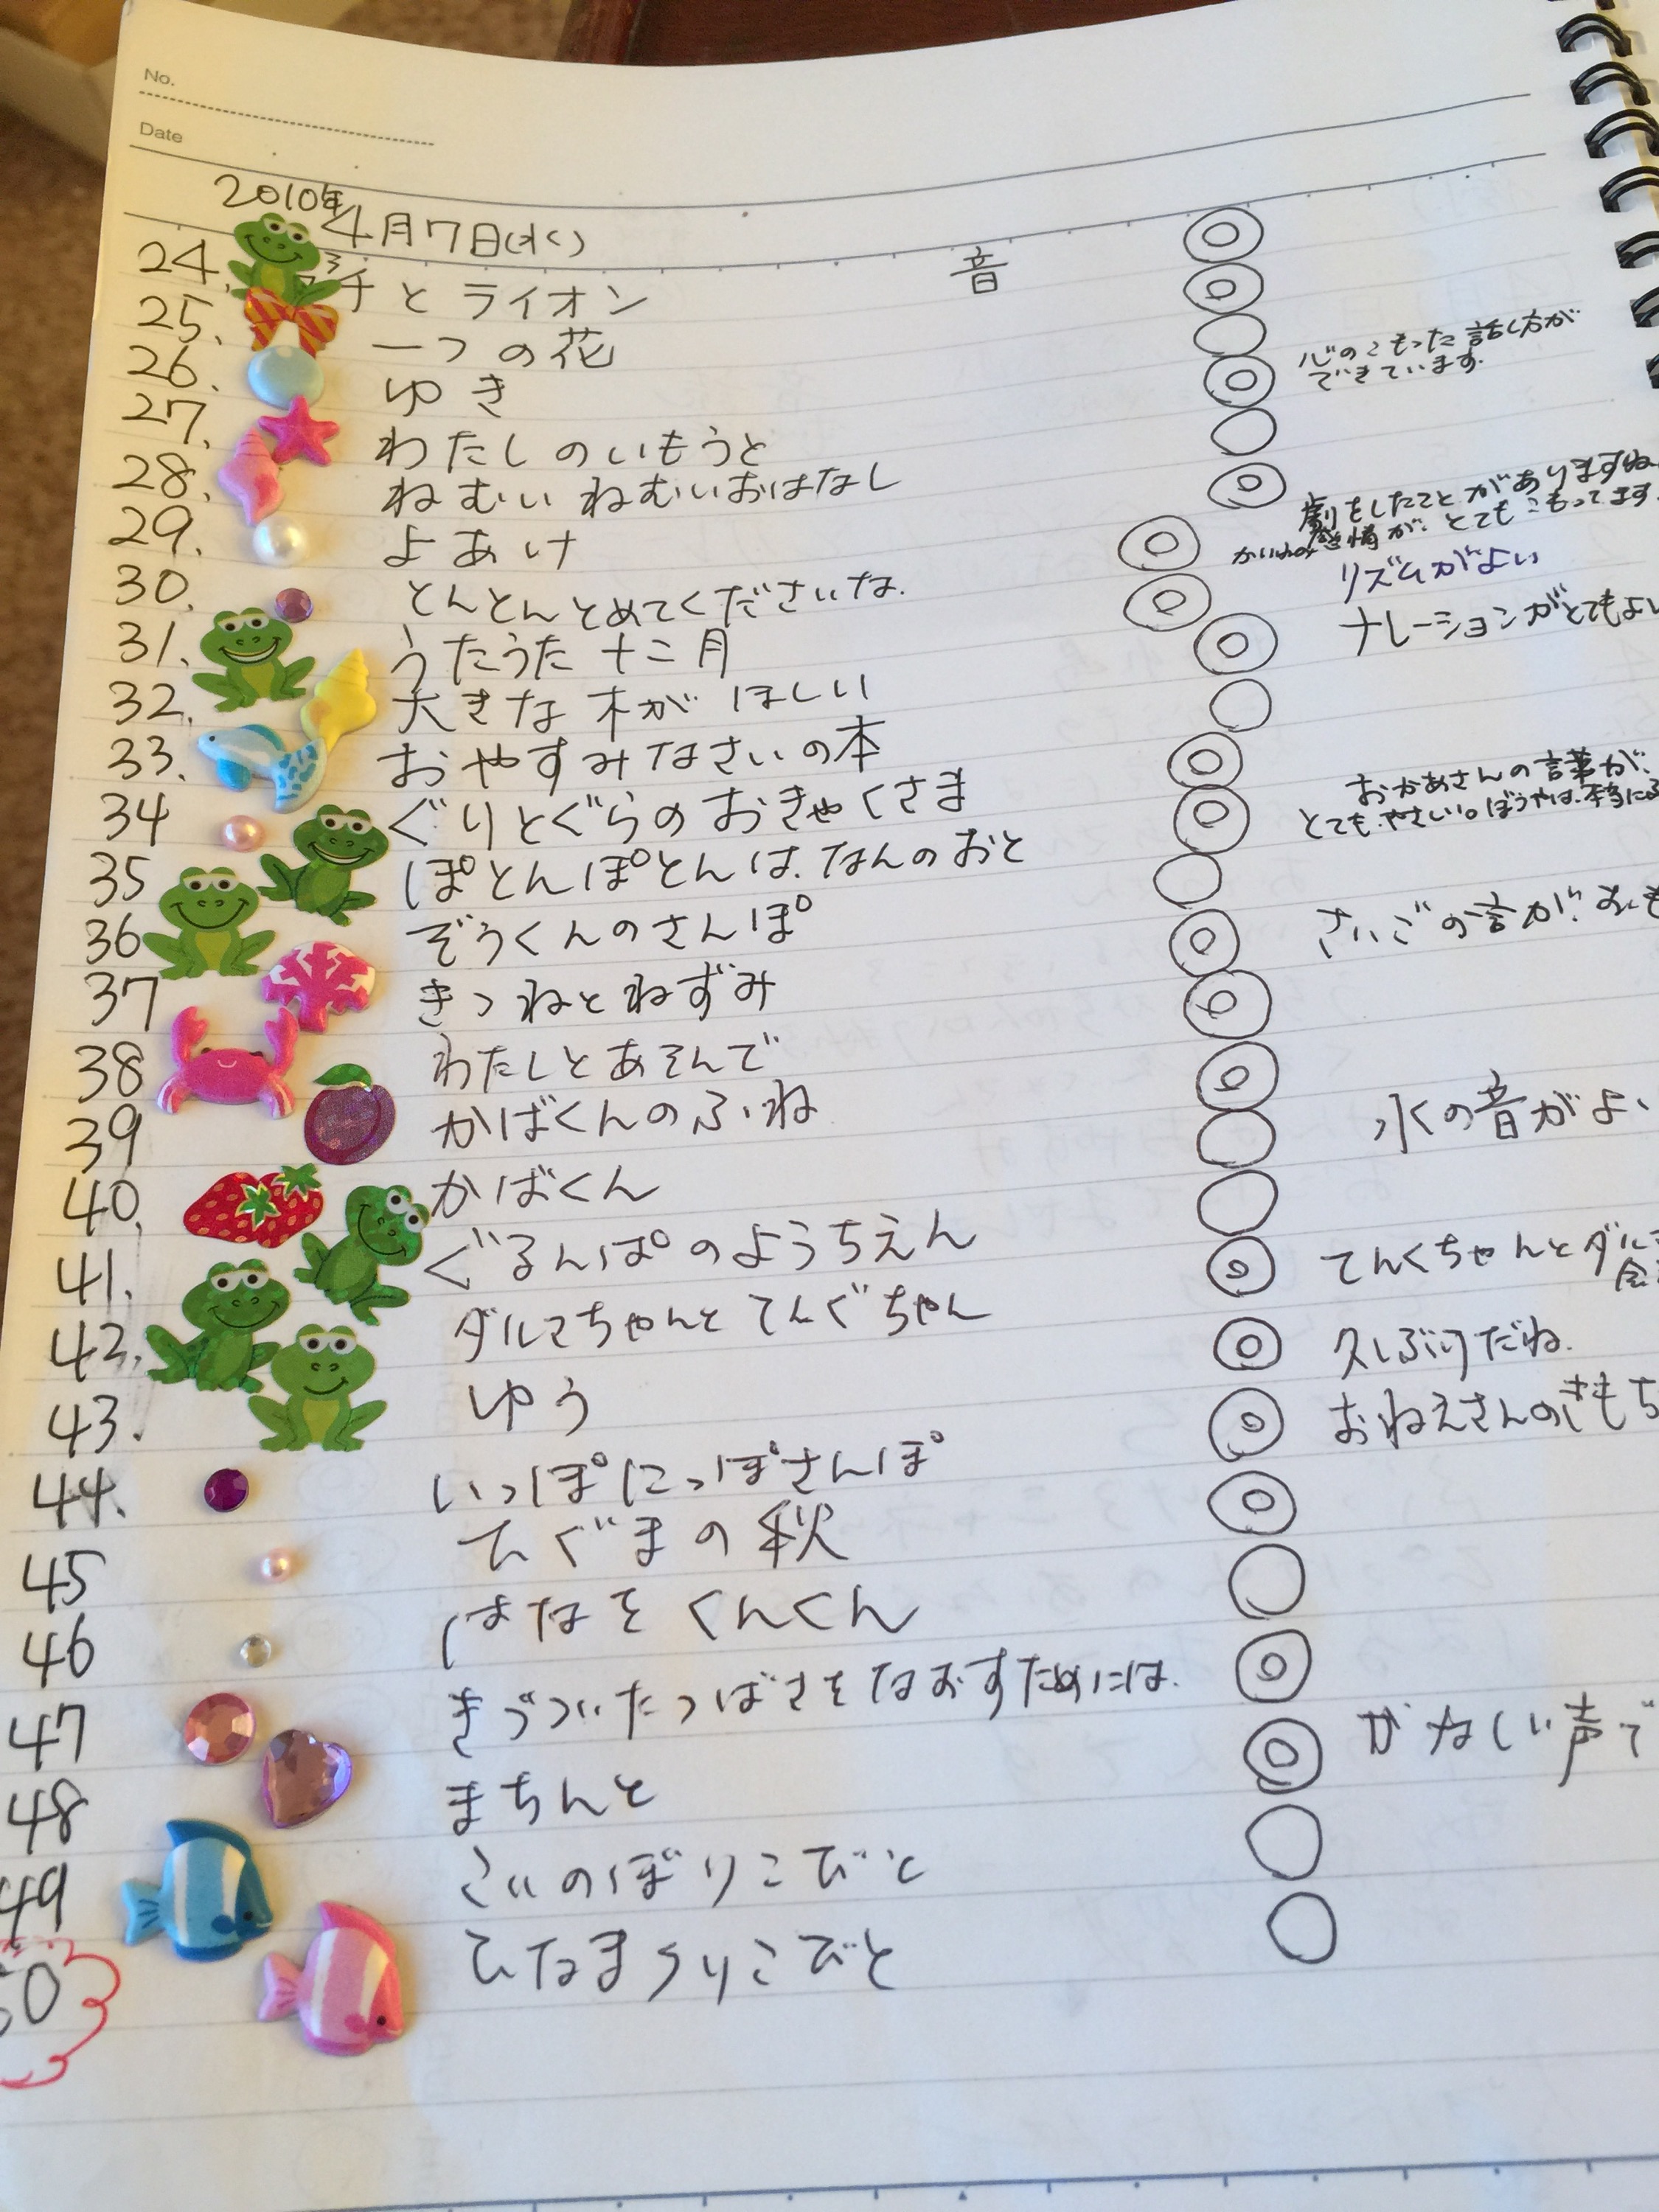 No.
Date
2010年
4月7日(水)
24. チとライオン 音 ◎
25. 一つの花 ◎
26. ゆき ○ 心のこもった話し方が
できています.
27. わたしのいもうと ◎
28. ねむいねむいおはなし ○
29. よあけ ◎ 劇をしたことがありますね
感情が、とてもこもってます
30. とんとんとめてくださいな. ◎ リズムがよい
31. うたうた十二月 ◎ ナレーションがとてもよい
32. 大きな木がほしい ◎
33. おやすみなさいの本 ○
34 ぐりとぐらのおきゃくさま ◎ おかあさんの言葉が、
とてもやさしい。ぼうやは、本当に
35 ぽとんぽとんは.なんのおと ◎
36 ぞうくんのさんぽ ○ さいごの音が
37 きつねとねずみ ◎
38 わたしとあそんで ◎
39 かばくんのふね ◎ 水の音がよ
40. かばくん ○
41. ぐるんぱのようちえん ○
42. ダルマちゃんとてんぐちゃん ◎ てんぐちゃんとダル
43. ゆう ◎ 久しぶりだね.
44. いっぽにっぽさんぽ ◎ おねえさんのきもち
45 てぐまの秋 ◎
46 はなをくんくん ○
47 きづついたつばさをなおすためには. ◎
48 まちんと ◎ かなしい声で
49 こいのぼりこびと ○
50 ひなまつりこびと ○